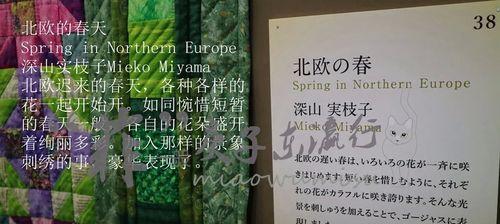 北欧的春天
Spring in Northern Europe
深山实枝子Mieko Miyama
北欧迟来的春天，各种各样的
花一起开始开，如同惋惜短暂
的春天一般，各自的花朵盛开
着绚丽多彩。加入那样的景象
刺绣的事，豪上表现了。
38
北欧の春
Spring in Northern Europe
深山 実枝子
Mieko Miyama
北欧の遅い春は、いろいろの花が一斉に咲
きはじめます。短い春を惜しむように、それぞ
れの花がカラフルに咲き誇ります。そんな光
景を刺しゅうを加えることで、ゴージャスに表
東瀛行
miaow